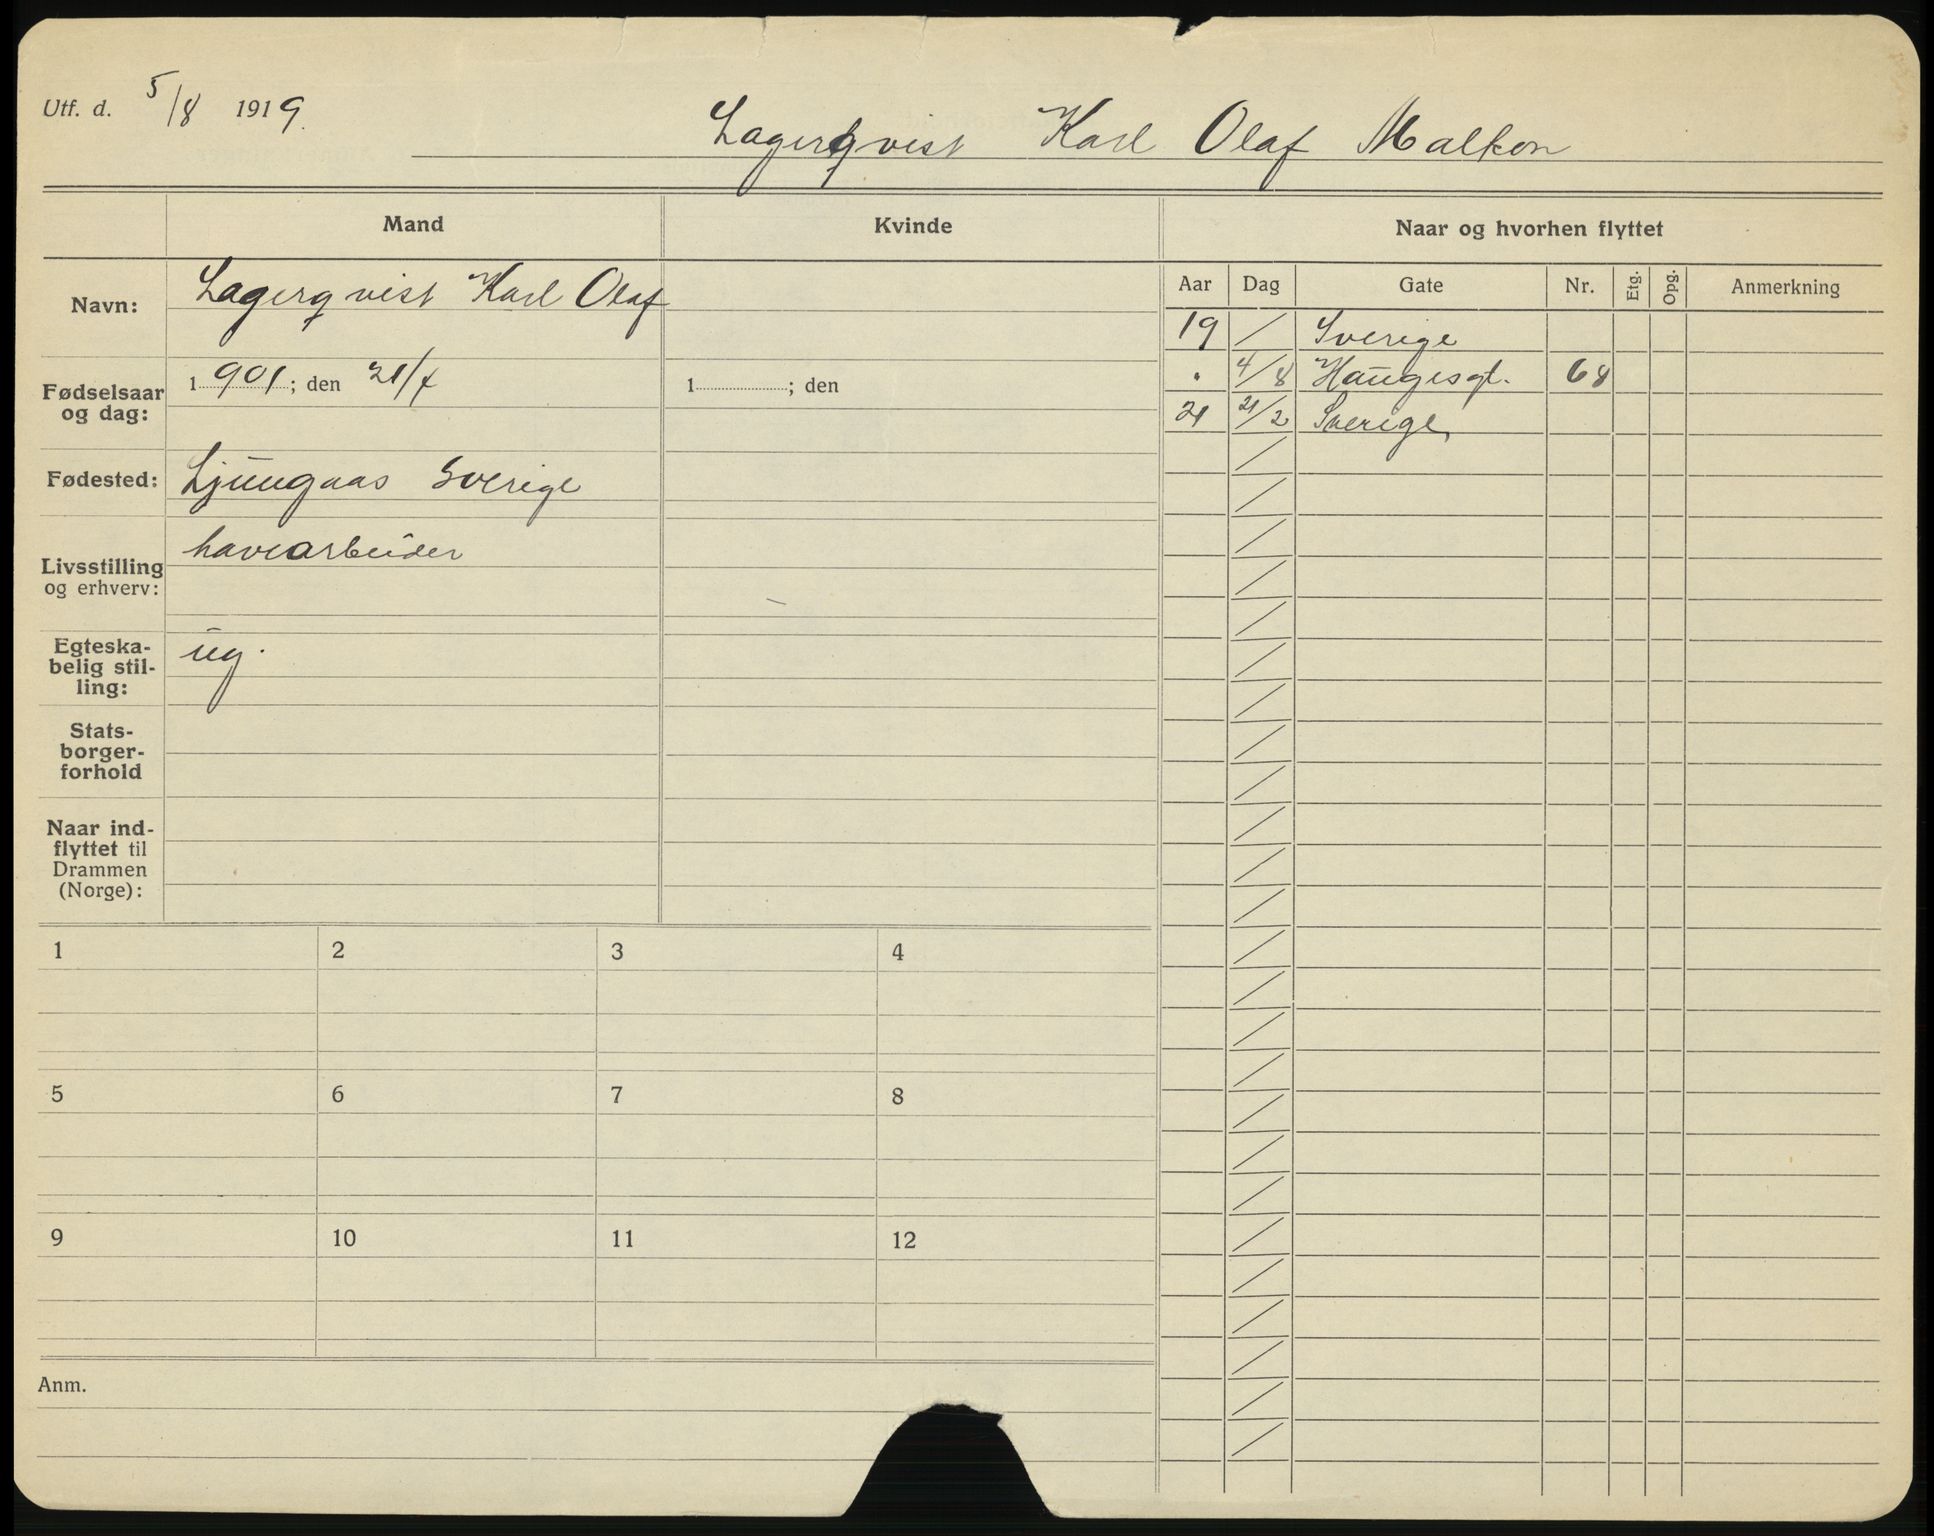 Utf. d. 5/8 1919.
Lagerqvist Karl Olaf Malkon
Mand Kvinde Naar og hvorhen flyttet
Aar Dag Gate Nr. Etg. Opg. Anmerkning
Navn: Lagerqvist Karl Olaf
19 / Sverige
Fødselsaar og dag: 1901; den 21/4 1 ; den
" 4/8 Haugesgt. 68
21 21/2 Sverige
Fødested: Ljungaas Sverige
Livsstilling og erhverv: havearbeider
Egteska-
belig stil-
ling: ug.
Stats-
borger-
forhold
Naar ind-
flyttet til
Drammen
(Norge):
1 2 3 4
5 6 7 8
9 10 11 12
Anm.